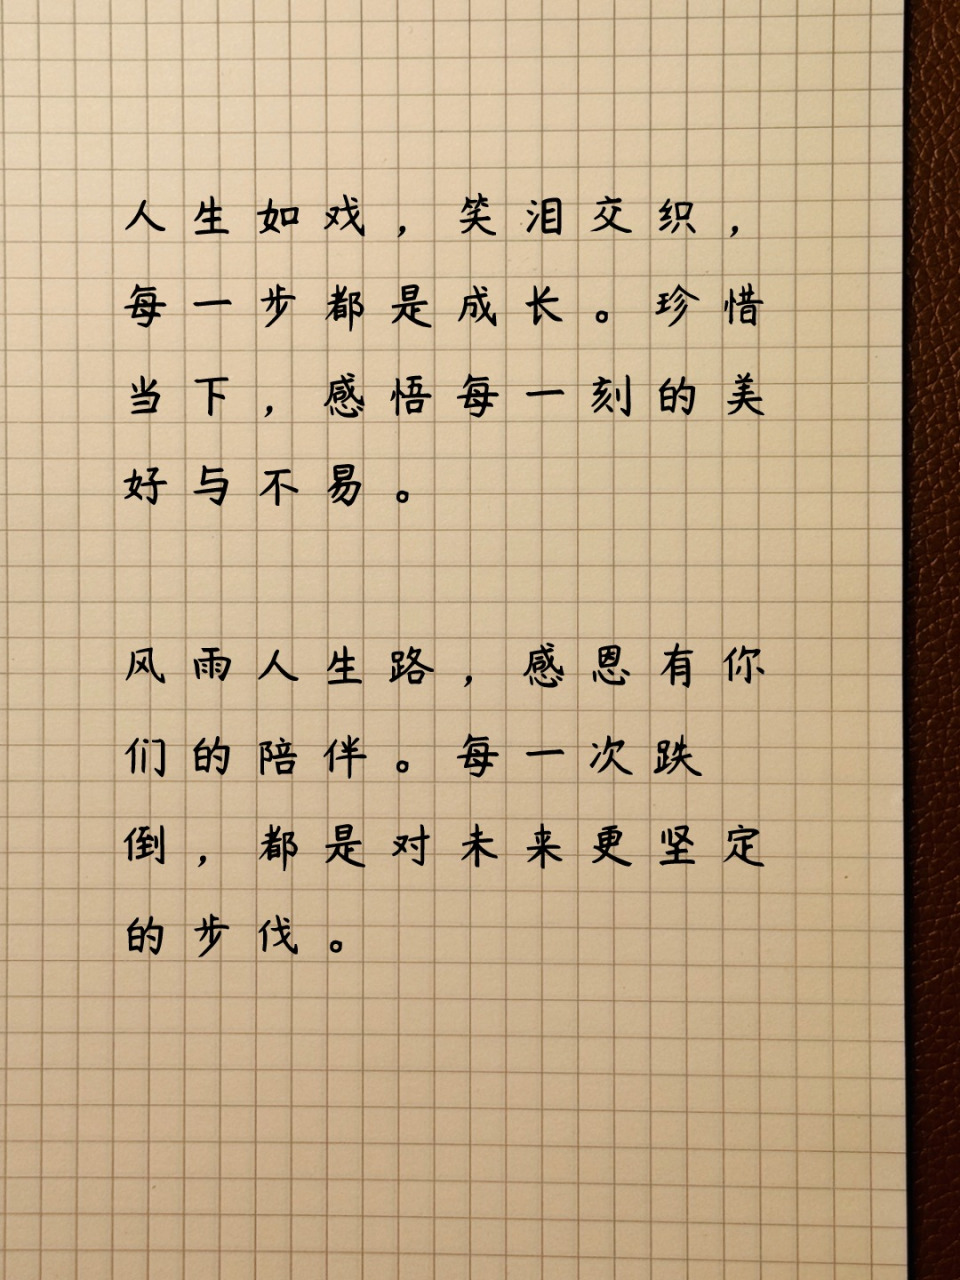 人生如戏，笑泪交织，
每一步都是成长。珍惜
当下，感悟每一刻的美
好与不易。
风雨人生路，感恩有你
们的陪伴。每一次跌
倒，都是对未来更坚定
的步伐。